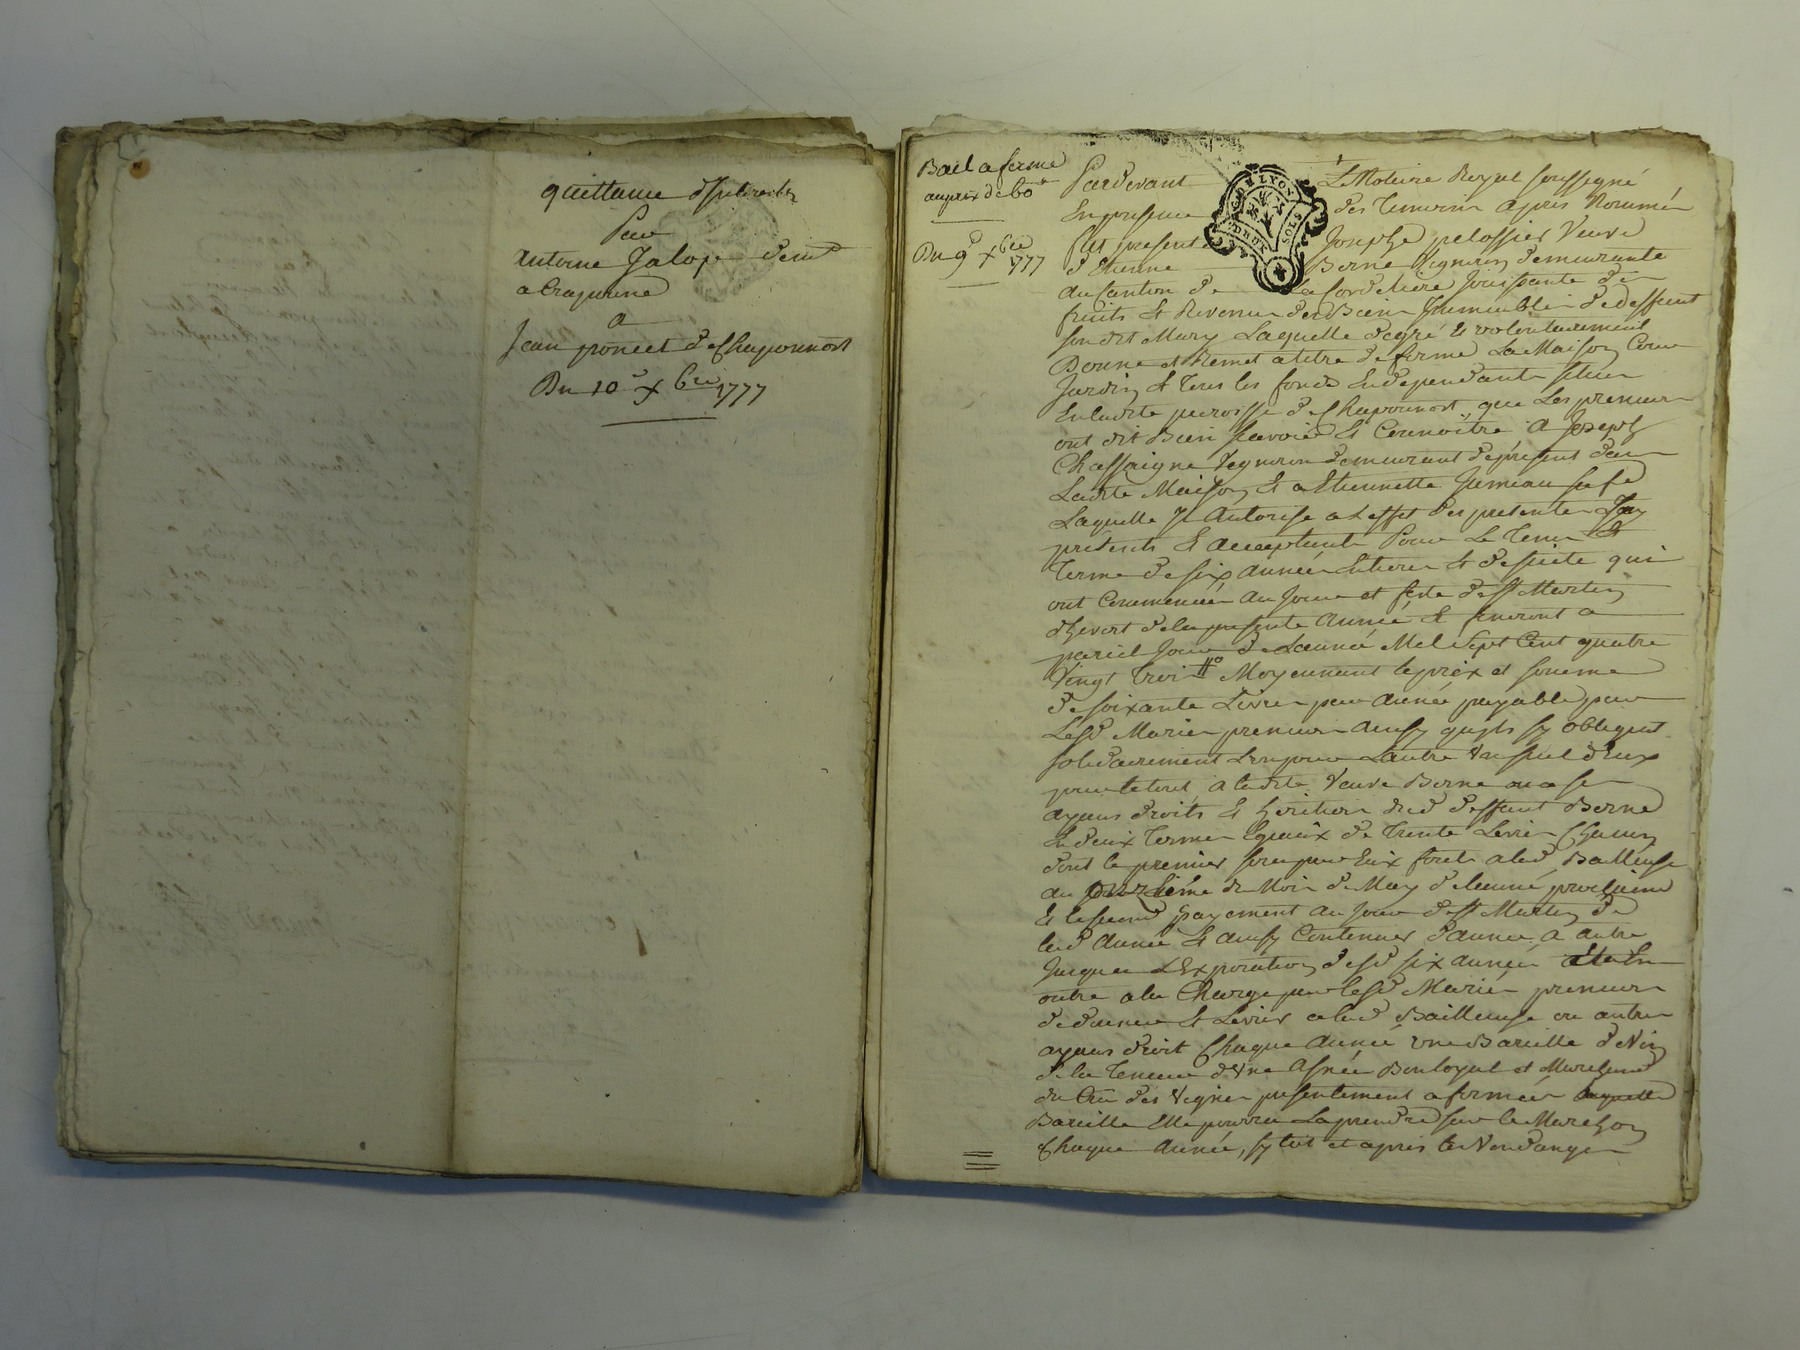 quittance d'Interets
Par
Antoine Jalop demt
a Craponne
a
Jean poncet de Chaponnost
Du 10e Xbre 1777
Bail a ferme
au prix de 60tt
Du 9e Xbre 1777
GEN DE LYON
DEUX SOLS
Pardevant Le Notaire Royal soussigné
En presence des Temoins après Nommés
fut presente Josephe pelossier Veuve
d'Etienne Berne Vigneron demeurante
au Canton de La Cordeliere Jouissante des
fruits Et Revenus des Biens Immeubles de deffunt
son dit Mary Laquelle de gré Et volontairement
Donne et Remet a titre de ferme La Maison Cour
Jardin Et tous les fonds En dependants situés
En ladite paroisse de Chaponnost, que Les preneurs
ont dit Bien scavoir Et Connoitre a Joseph
Chassaigne Vigneron demeurant de present dans
Ladite Maison Et a Etiennette Jumeau sa fe
Laquelle Il Autorise a L'effet des presentes Icy
presents Et acceptants Pour Le Tems Et
Terme de six années Entieres Et de suite qui
ont Commencées au Jour et fête de St Martin
d'hyvert de la presente Année Et finiront a
pareil Jour de L'année Mil Sept Cent quatre
Vingt Trois Moyennant le prix et somme
de soixante Livres par Année payable par
Lesd. Mariés preneurs ainsy qu'ils sy obligent
solidairement L'un pour L'autre Un seul d'eux
pour le tout, a ladite Veuve Berne ou a ses
ayans droits Et héritiers dud deffunt Berne
En deux Termes Egaux de Trente Livres Chacun
dont le premier sera par Eux fait a lad. Bailleuse
au quinzième du Mois de May de l'année prochaine
Et le second payement au Jour de St Martin de
lad année Et ainsy Continuer d'année a autre
Jusques a L'Expiration desd. six années
outre a la Charge par lesd. Mariés preneurs
de donner Et Livrer a lad Bailleuse ou autres
ayans droit Chaque année une Bareille de Vin
de la Teneur d'Une Asnée Bon loyal et Marchand
du Cru des Vignes presentement affermées Laquelle
Bareille Elle pourra La prendre sur le
Chaque Année, sy tot et après les Vendanges